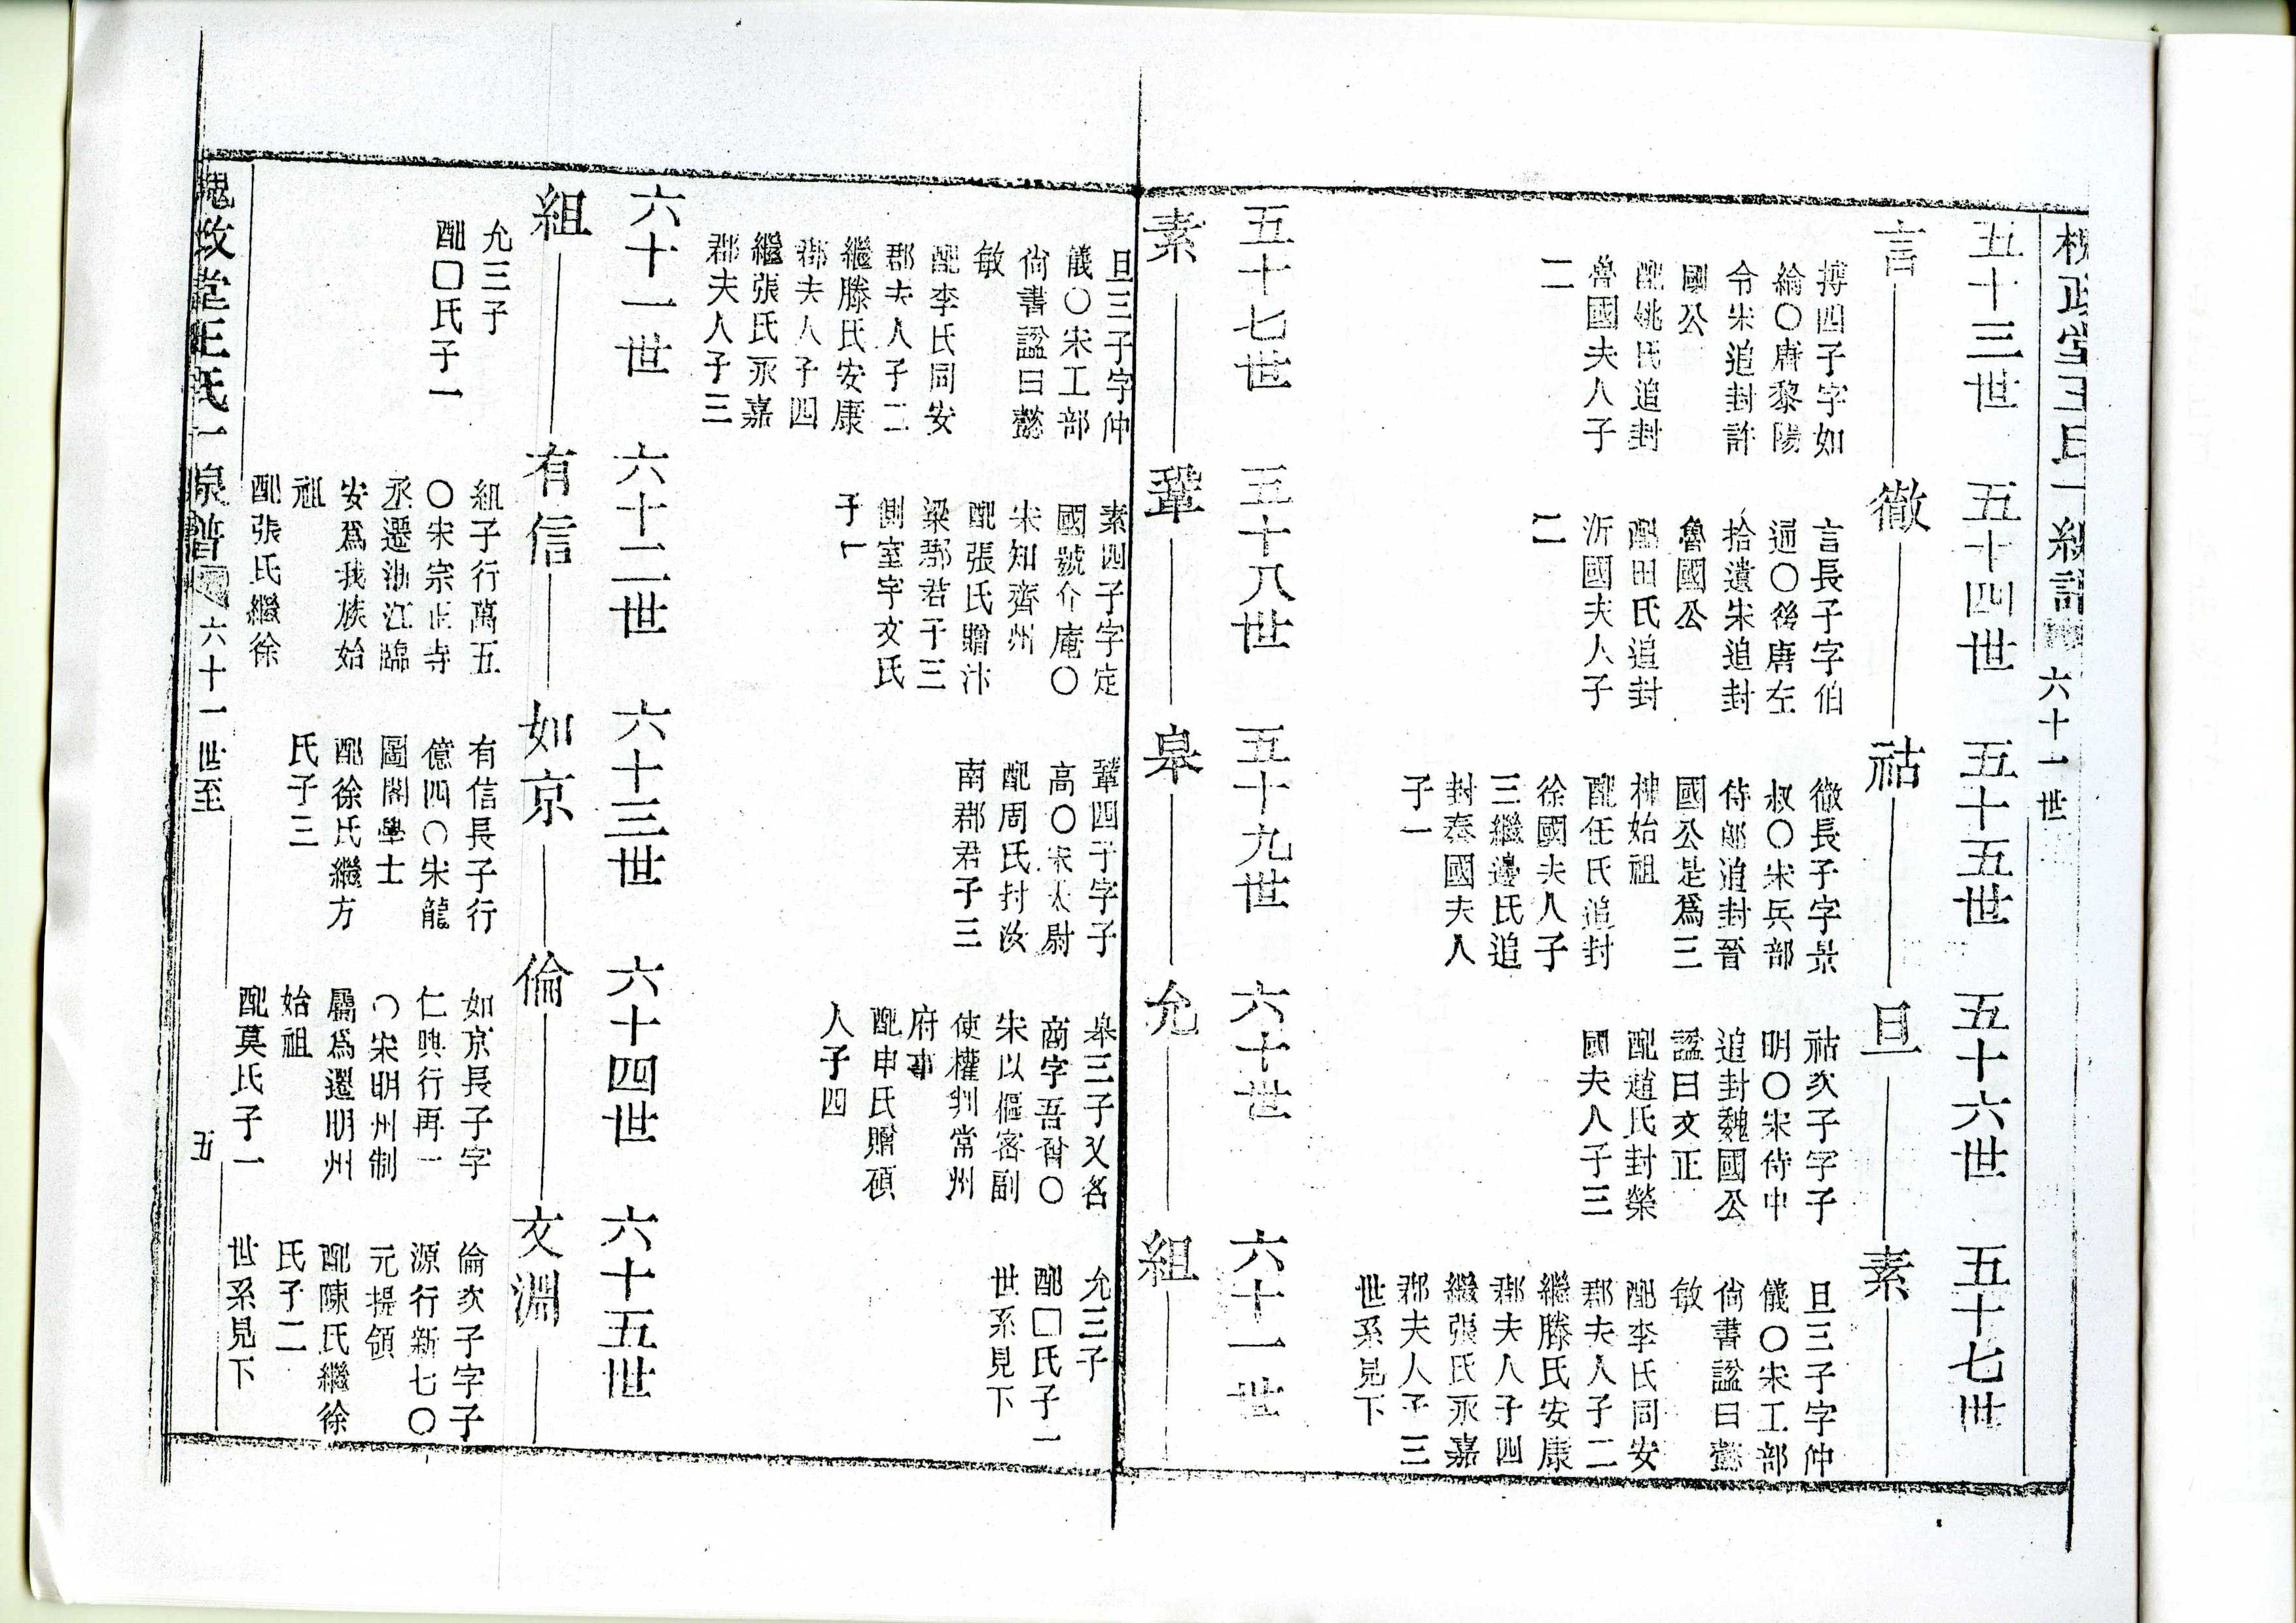 槐政堂王氏一線譜 六十一世
五十三世 五十四世 五十五世 五十六世 五十七世
言 徹 祜 旦 素
搏四子字如
綸〇唐黎陽
令宋追封許
國公
配姚氏追封
魯國夫人子
二
言長子字伯
通〇後唐左
拾遺宋追封
魯國公
配田氏追封
沂國夫人子
二
徹長子字景
叔〇宋兵部
侍郎追封晉
國公是爲三
槐始祖
配任氏追封
徐國夫人子
三繼邊氏追
封秦國夫人
子一
祜次子字子
明〇宋侍中
追封魏國公
諡曰文正
配趙氏封榮
國夫人子三
旦三子字仲
儀〇宋工部
尙書諡曰懿
敏
配李氏同安
郡夫人子二
繼滕氏安康
郡夫人子四
繼張氏永嘉
郡夫人子三
世系見下
五十七世 五十八世 五十九世 六十世 六十一世
素 鞏 皋 允 組
旦三子字仲
儀〇宋工部
尙書諡曰懿
敏
配李氏同安
郡夫人子二
繼滕氏安康
郡夫人子四
繼張氏永嘉
郡夫人子三
素四子字定
國號介庵〇
宋知齊州
配張氏贈汴
梁郡君子三
側室宇文氏
子一
鞏四子字子
高〇宋太尉
配周氏封汝
南郡君子三
皋三子又名
商字吾爾〇
宋以樞密副
使權判常州
府事
配申氏贈碩
人子四
允三子
配囗氏子一
世系見下
六十一世 六十二世 六十三世 六十四世 六十五世
組 有信 如京 倫 文淵
允三子
配囗氏子一
組子行萬五
〇宋宗正寺
丞遷浙江臨
安爲我族始
祖
配張氏繼徐
有信長子行
億四〇宋龍
圖閣學士
配徐氏繼方
氏子三
如京長子字
仁興行再一
〇宋明州制
屬爲遷明州
始祖
配莫氏子一
倫次子字子
源行新七〇
元提領
配陳氏繼徐
氏子二
世系見下
槐政堂王氏一線譜 六十一世至 五